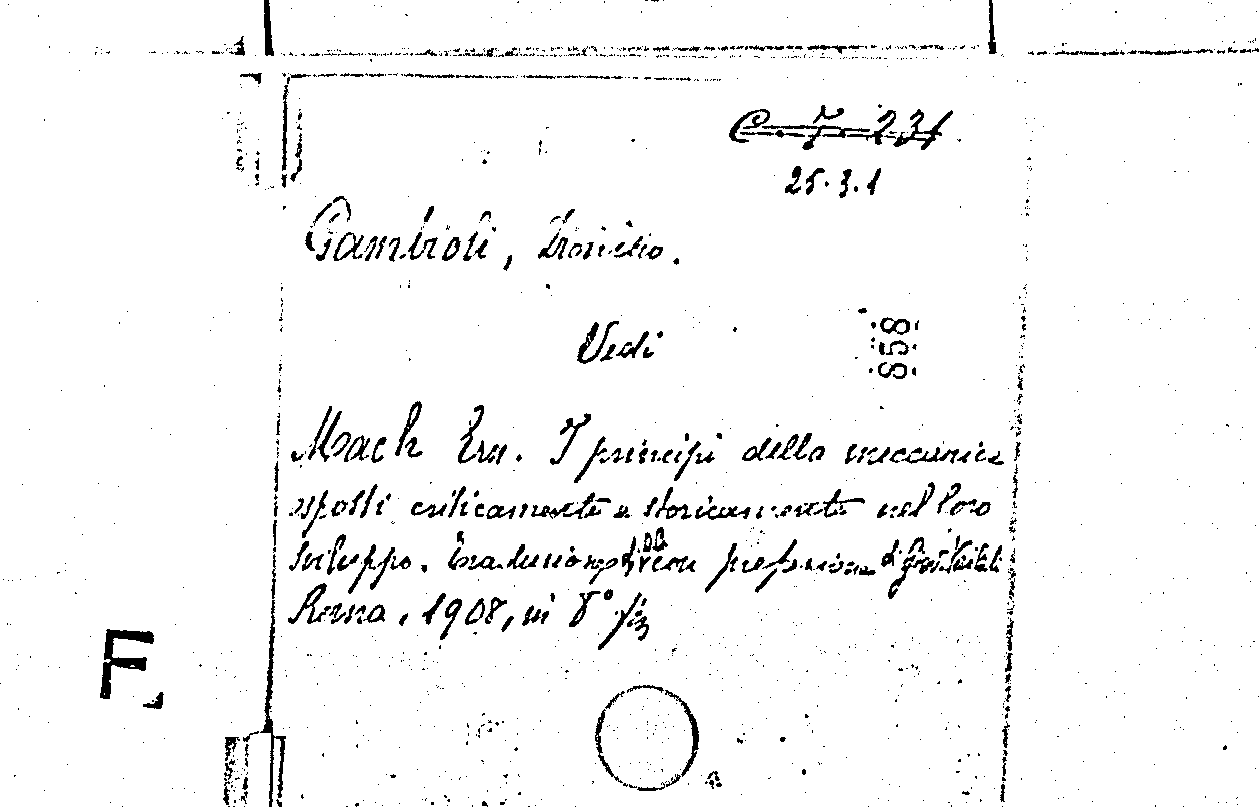 C. I. 231
25.3.1
Gambioli, Dionisio.
Vedi
858
Mach Ern. I principi della meccanica
esposti criticamente e storicamente nel loro
sviluppo. Traduzione di con prefazione di Giov. Vailati
Roma, 1908, in 8°
F